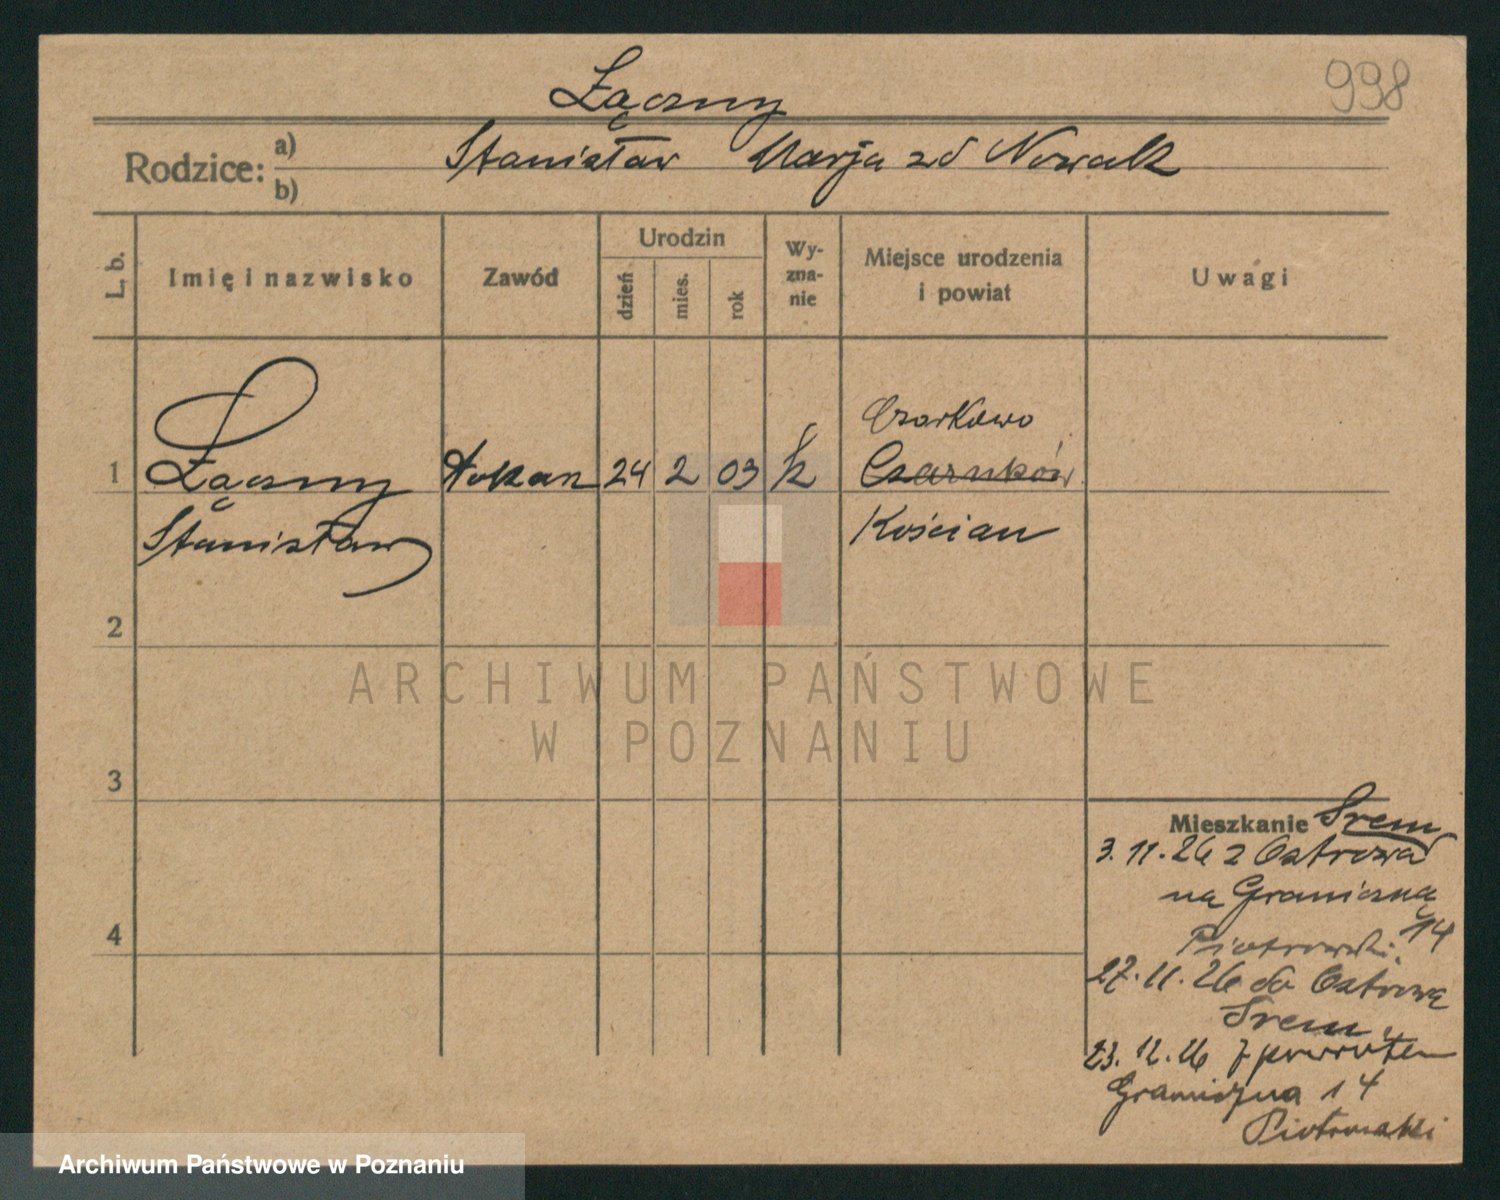 Łączny
998
Rodzice: a) b)
Stanisław Marja zd Nowak
L. b.
Imię i nazwisko
Zawód
Urodzin
dzień
mies.
rok
Wy-
zna-
nie
Miejsce urodzenia
i powiat
Uwagi
1
Łączny
Stanisław
24
2
03
k
Czarkowo
Czarnków
Kościan
2
3
4
Mieszkanie Srem
3.11.26 z Ostrowa
na Graniczną
14
Piotrowski.
27.11.26 do Ostrowa
Srem
23.12.26 z powrotem
Graniczna 14
Piotrowski
ARCHIWUM PAŃSTWOWE
W POZNANIU
Archiwum Państwowe w Poznaniu